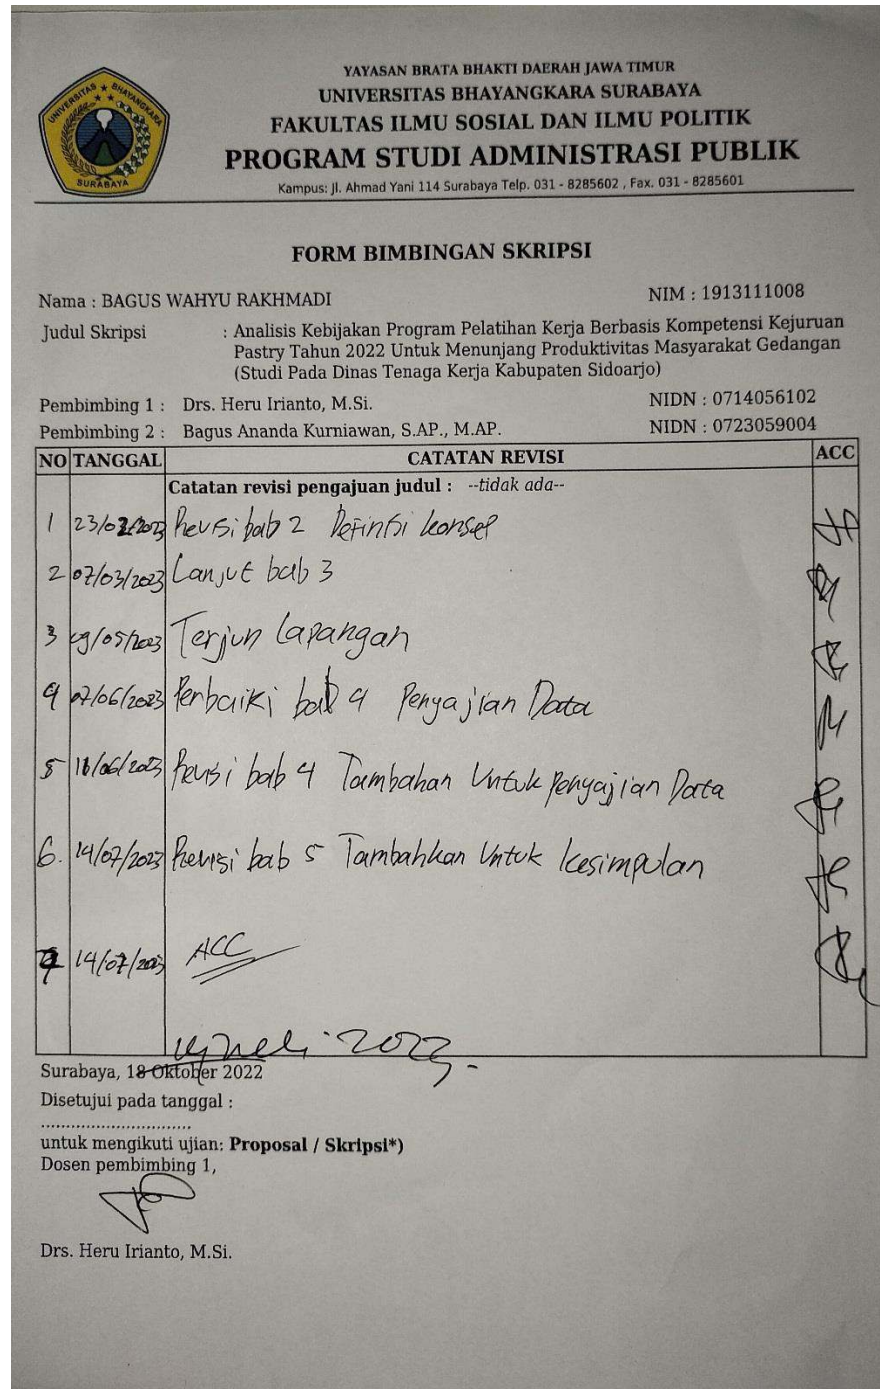 UNIVERSITAS BHAYANGKARA
SURABAYA
YAYASAN BRATA BHAKTI DAERAH JAWA TIMUR
UNIVERSITAS BHAYANGKARA SURABAYA
FAKULTAS ILMU SOSIAL DAN ILMU POLITIK
PROGRAM STUDI ADMINISTRASI PUBLIK
Kampus: Jl. Ahmad Yani 114 Surabaya Telp. 031 - 8285602 , Fax. 031 - 8285601
FORM BIMBINGAN SKRIPSI
Nama : BAGUS WAHYU RAKHMADI NIM : 1913111008
Judul Skripsi : Analisis Kebijakan Program Pelatihan Kerja Berbasis Kompetensi Kejuruan
Pastry Tahun 2022 Untuk Menunjang Produktivitas Masyarakat Gedangan
(Studi Pada Dinas Tenaga Kerja Kabupaten Sidoarjo)
Pembimbing 1 : Drs. Heru Irianto, M.Si. NIDN : 0714056102
Pembimbing 2 : Bagus Ananda Kurniawan, S.AP., M.AP. NIDN : 0723059004
NO TANGGAL CATATAN REVISI ACC
Catatan revisi pengajuan judul : --tidak ada--
1 Revisi bab 2 Definisi konsep
2 07/03/2023 Lanjut bab 3
3 Terjun Lapangan
4 07/06/2023 Perbaiki bab 4 Penyajian Data
5 Revisi bab 4 Tambahan Untuk Penyajian Data
6. 14/07/2023 Revisi bab 5 Tambahkan Untuk Kesimpulan
14/07/2023 ACC
2023
Surabaya, 18 Oktober 2022
Disetujui pada tanggal :
..............................
untuk mengikuti ujian: Proposal / Skripsi*)
Dosen pembimbing 1,
Drs. Heru Irianto, M.Si.